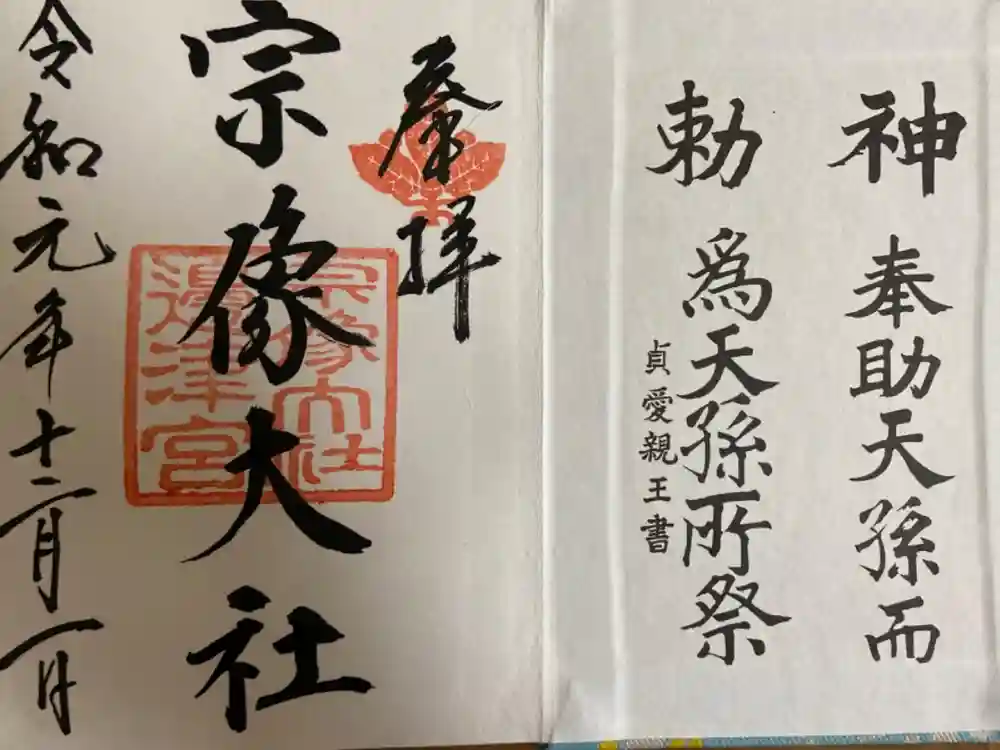 神勅
奉助天孫而
爲天孫所祭
貞愛親王書
奉拝
宗像大社
宗像大社
邊津宮
令和元年十二月一日